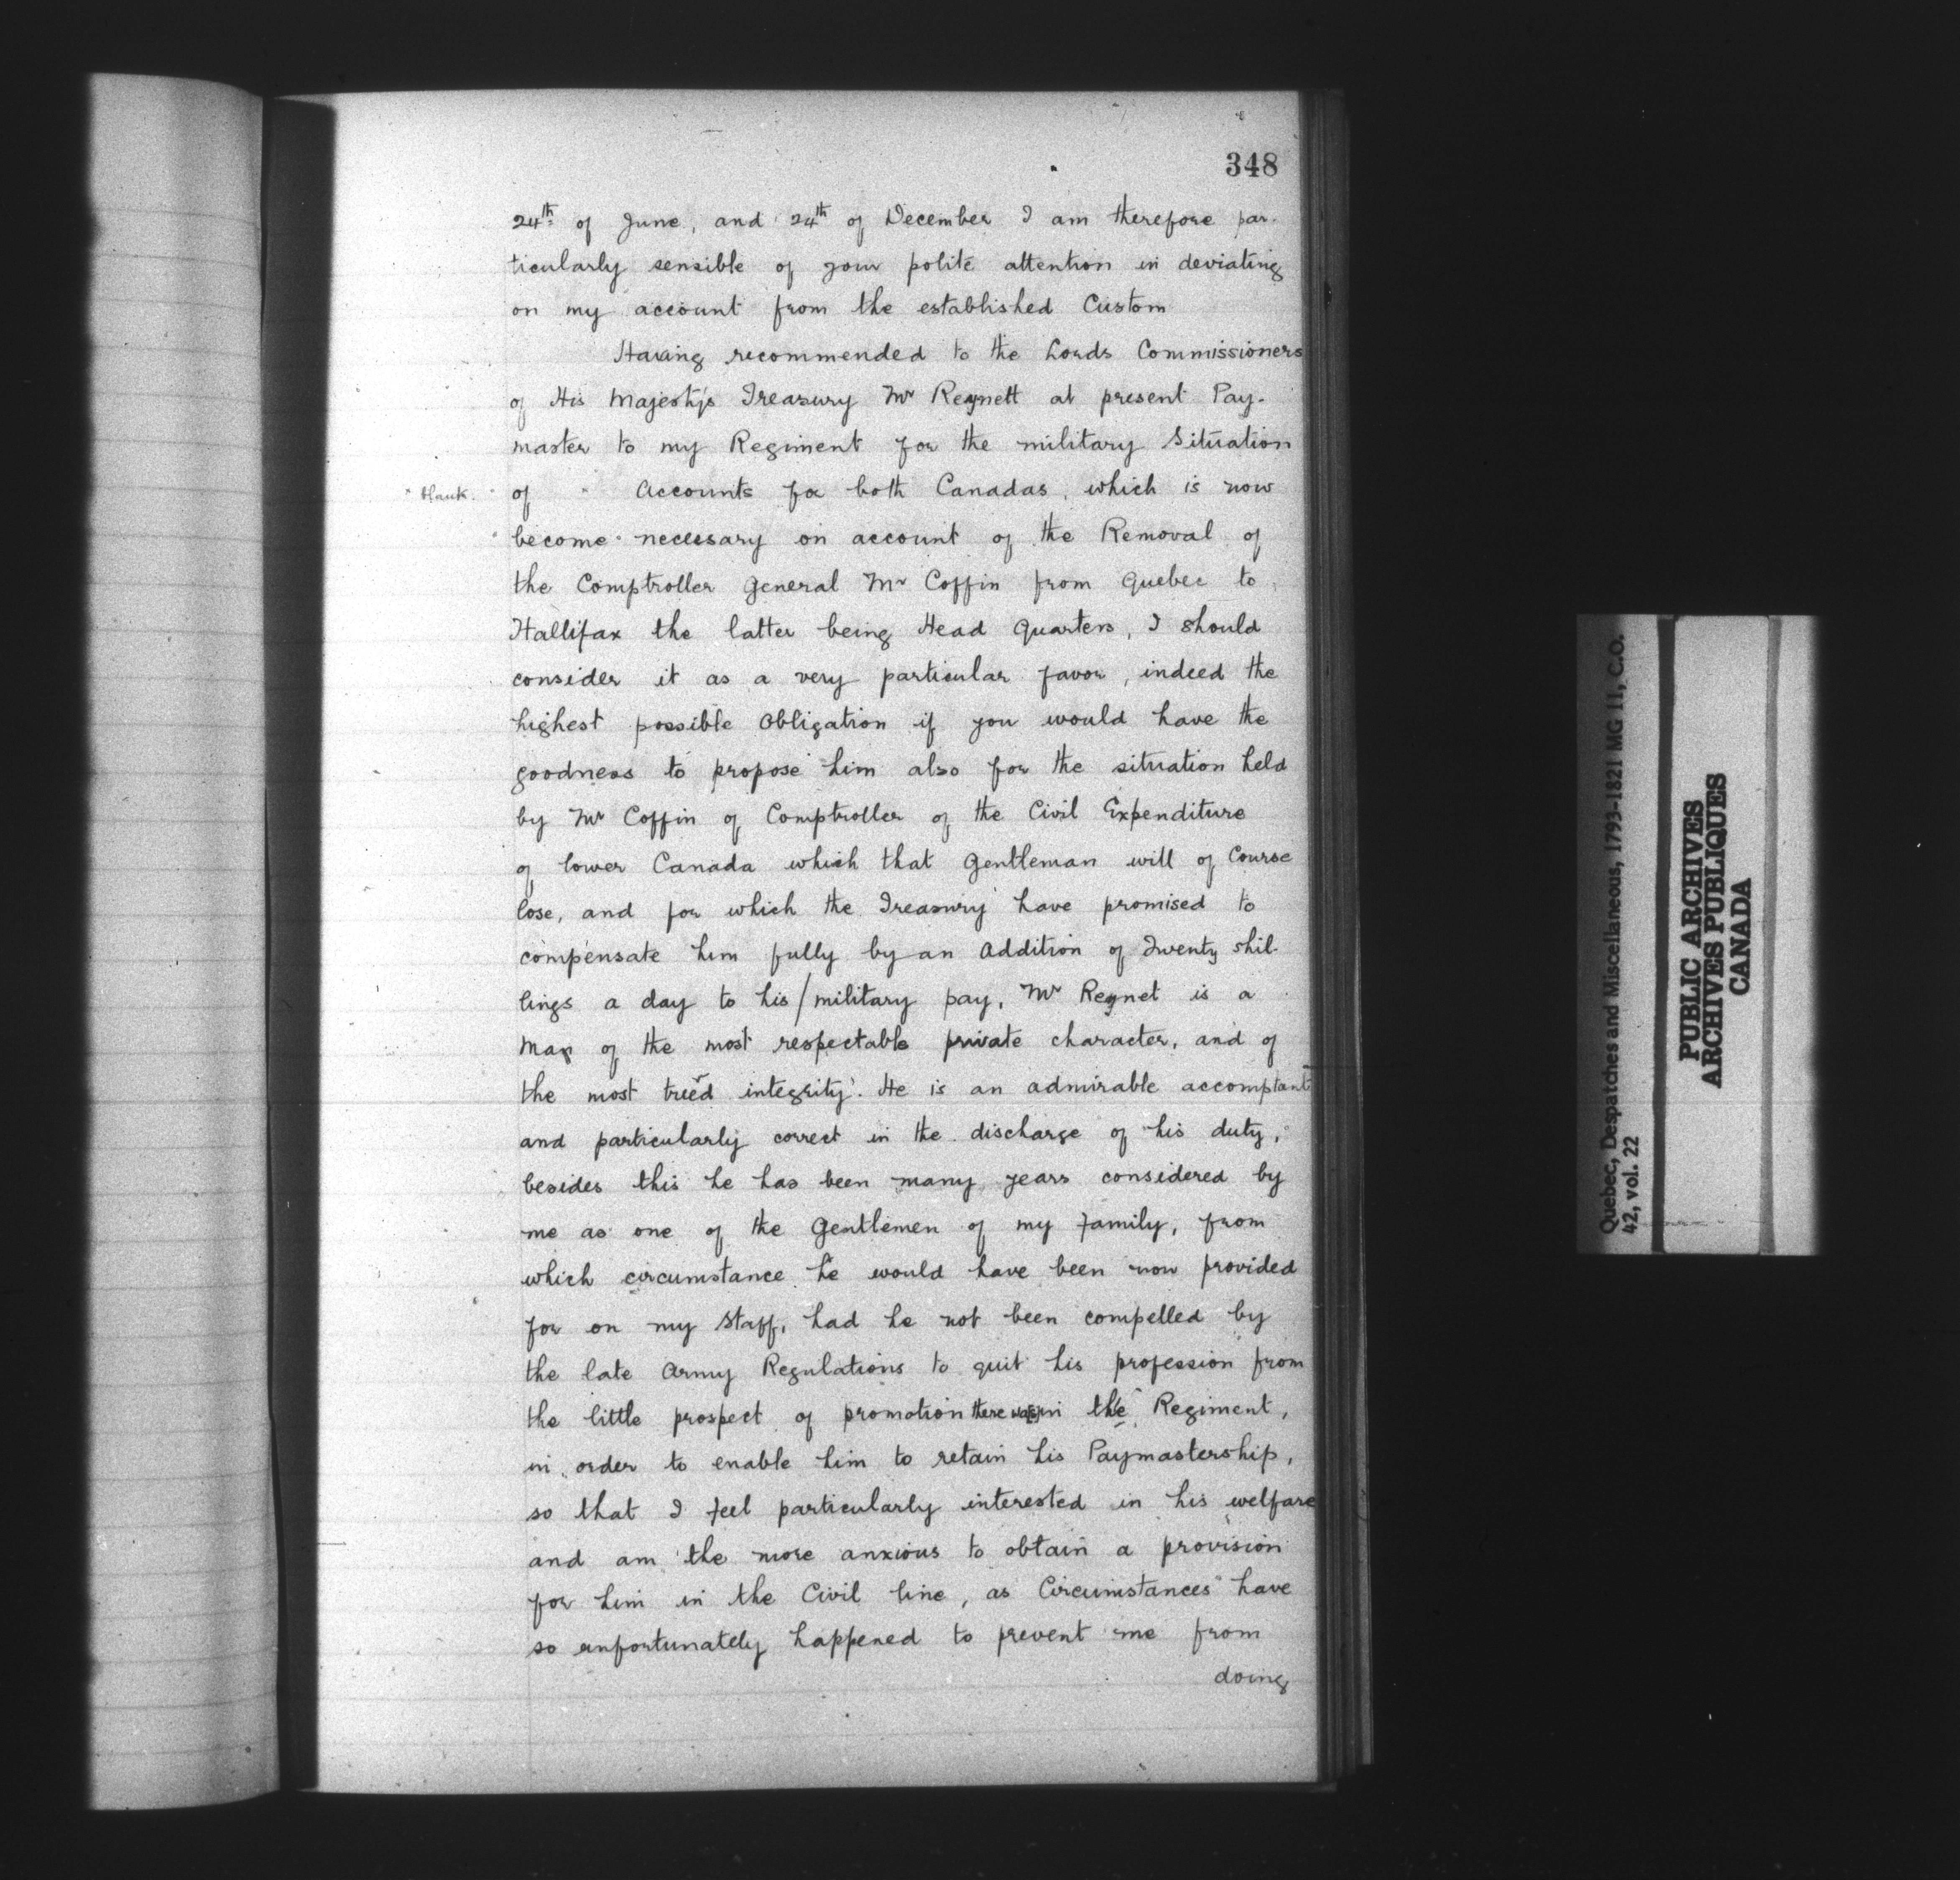 348
24th of June, and 24th of December I am therefore par-
ticularly sensible of your polite attention in deviating
on my account from the established Custom
Having recommended to the Lords Commissioners
of His Majesty's Treasury Mr Reynett at present Pay-
master to my Regiment for the military Situation
" blank. " of " Accounts for both Canadas, which is now
become necessary on account of the Removal of
the Comptroller General Mr Coffin from Quebec to
Hallifax the latter being Head Quarters, I should
consider it as a very particular favor, indeed the
highest possible Obligation if you would have the
goodness to propose him also for the situation held
by Mr Coffin of Comptroller of the Civil Expenditure
of lower Canada which that Gentleman will of Course
lose, and for which the Treasury have promised to
compensate him fully by an Addition of Twenty shil-
lings a day to his/military pay, Mr Reynet is a
Man of the most respectable private character, and of
the most treed integrity. He is an admirable accomptant
and particularly correct in the discharge of his duty,
besides this he has been many years considered by
me as one of the Gentlemen of my family, from
which circumstance he would have been now provided
for on my Staff, had he not been compelled by
the late Army Regulations to quit his profession from
the little prospect of promotion there was in the Regiment,
in order to enable him to retain his Paymastership,
so that I feel particularly interested in his welfare
and am the more anxious to obtain a provision
for him in the Civil line, as Circumstances have
so unfortunately happened to prevent me from
doing
Quebec, Despatches and Miscellaneous, 1793-1821 MG 11, C.O.
42, vol. 22
PUBLIC ARCHIVES
ARCHIVES PUBLIQUES
CANADA